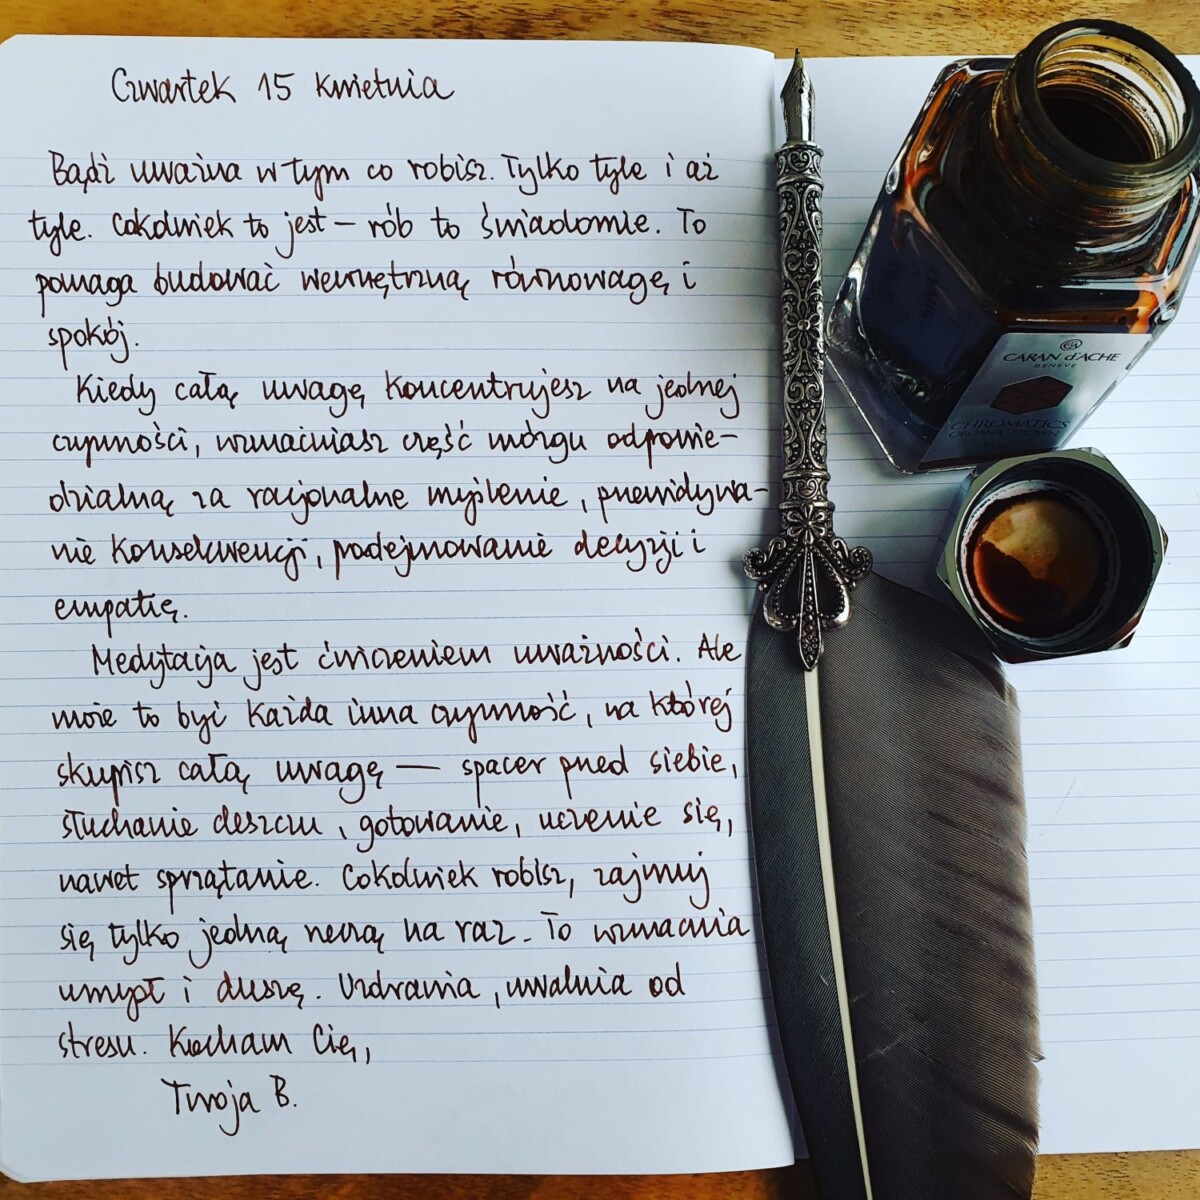 Czwartek 15 kwietnia
Bądź uważna w tym co robisz. Tylko tyle i aż
tyle. Cokolwiek to jest – rób to świadomie. To
pomaga budować wewnętrzną równowagę i
spokój.
Kiedy całą uwagę koncentrujesz na jednej
czynności, wzmacniasz część mózgu odpowie-
dzialną za racjonalne myślenie, przewidywa-
nie konsekwencji, podejmowanie decyzji i
empatię.
Medytacja jest ćwiczeniem uważności. Ale
może to być każda inna czynność, na której
skupisz całą uwagę — spacer przed siebie,
słuchanie deszczu, gotowanie, uczenie się,
nawet sprzątanie. Cokolwiek robisz, zajmuj
się tylko jedną rzeczą na raz. To wzmacnia
umysł i duszę. Uzdrawia, uwalnia od
stresu. Kocham Cię,
Twoja B.
CARAN d'ACHE
GENÈVE
CHROMATICS
ORGANIC BROWN